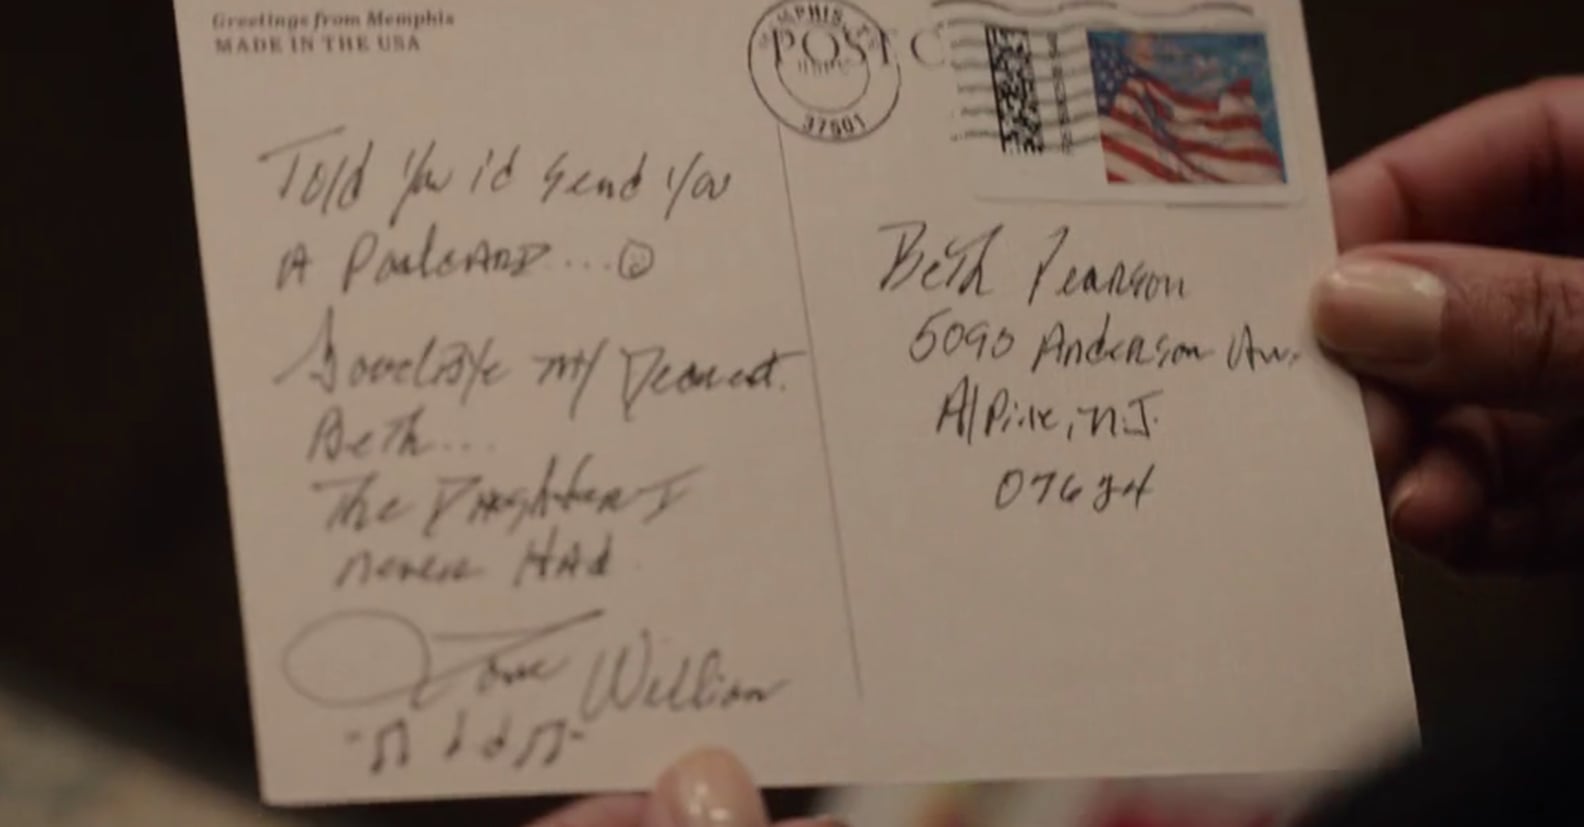 Greetings from Memphis
MADE IN THE USA
MEMPHIS, TN
POST C
37501
Told you i'd send you
A Postcard...
Goodbye my Dearest
Beth...
The Daughter I
never Had
Love William
Beth Pearson
5090 Anderson Av.
Alpine, N.J.
07624